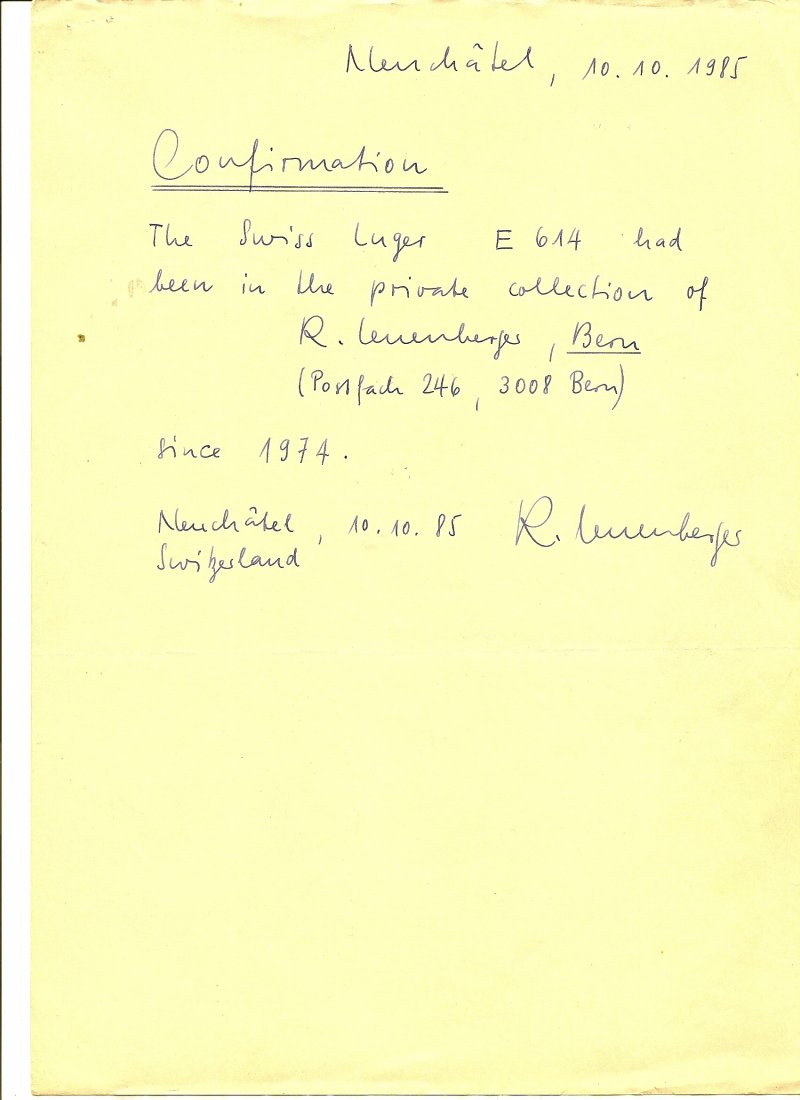 Neuchâtel, 10.10.1985
Confirmation
The Swiss Luger E 614 had
been in the private collection of
R. Leuenberger, Bern
(Postfach 246, 3008 Bern)
since 1974.
Neuchâtel, 10.10.85 R. Leuenberger
Switzerland